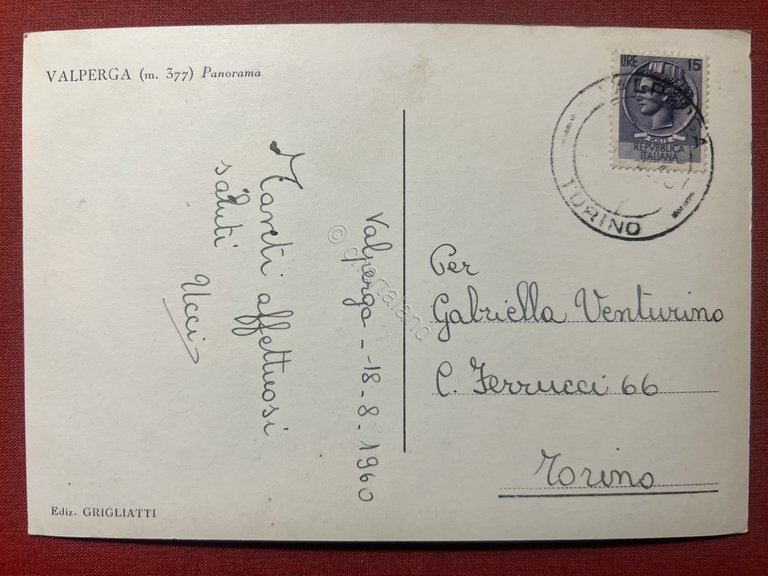 VALPERGA (m. 377) Panorama
LIRE 15
POSTE
REPVBBLICA
ITALIANA
VALPERGA
TORINO
Valperga - 18-8-1960
Tanti affettuosi
saluti
Ucci
Per
Gabriella Venturino
C. Ferrucci 66
Torino
Ediz. GRIGLIATTI